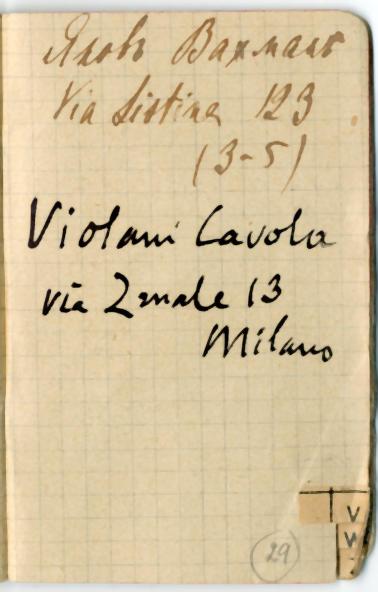 Яковъ Вахманъ
Via Sistina 123
(3-5)
Violani Cavola
via Zenale 13
Milano
V
W
29